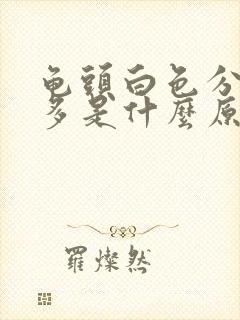 龟頭白色分
多是什麼原
羅燦然